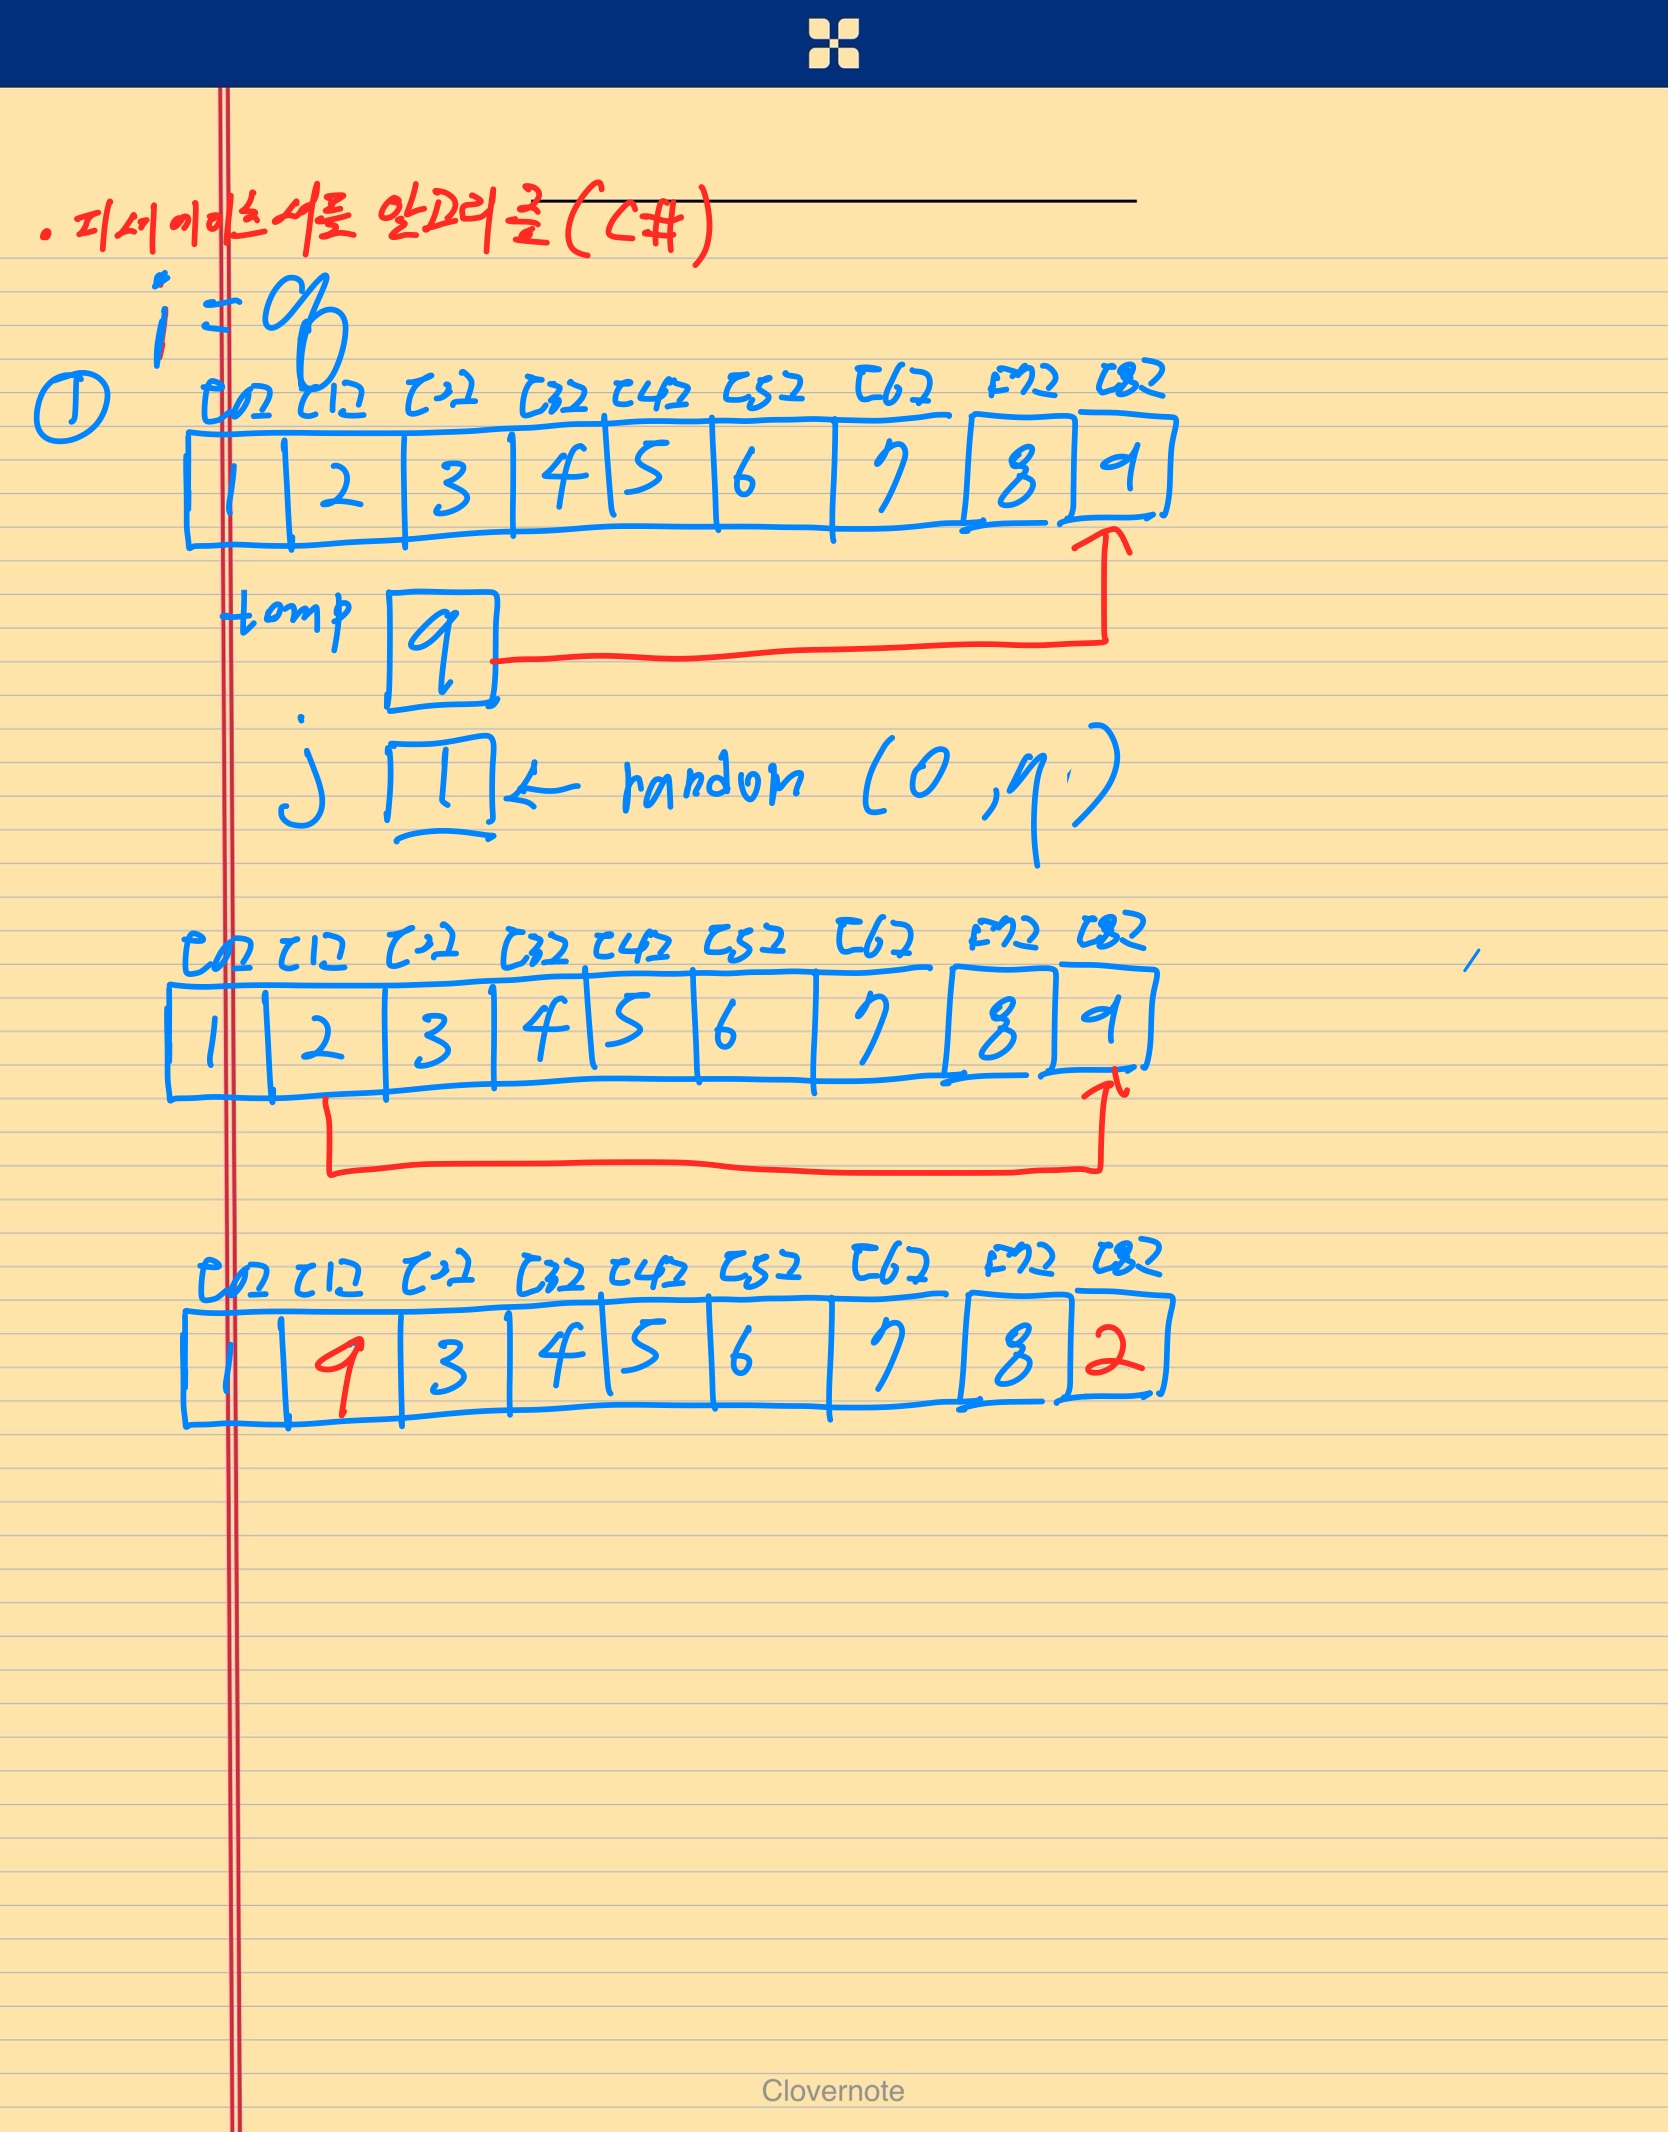 · 피셔 예이츠 셔플 알고리즘(C#)
i =
① [0] [1] [2] [3] [4] [5] [6] [7] [8]
1 2 3 4 5 6 7 8 9
temp 9
j 1 ← random (0, 9)
[0] [1] [2] [3] [4] [5] [6] [7] [8]
1 2 3 4 5 6 7 8 9
[0] [1] [2] [3] [4] [5] [6] [7] [8]
1 9 3 4 5 6 7 8 2
Clovernote